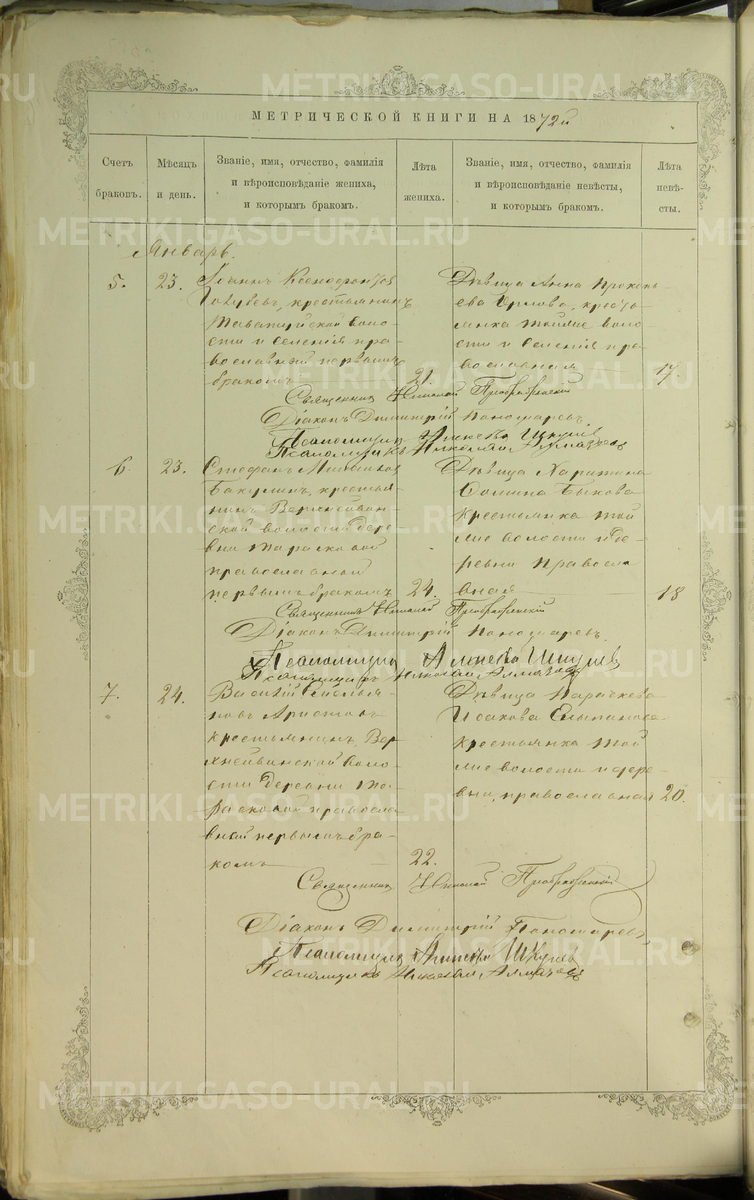 МЕТРИЧЕСКОЙ КНИГИ НА 1872й
Счетъ браковъ.
Мѣсяцъ и день.
Званіе, имя, отчество, фамилія
и вѣроисповѣданіе жениха,
и которымъ бракомъ.
Лѣта жениха.
Званіе, имя, отчество, фамилія
и вѣроисповѣданіе невѣсты,
и которымъ бракомъ.
Лѣта невѣ-
сты.
Январь.
5.
23.
Іоаннъ Ксенофонтов
крестьянинъ
Таватуйской воло-
сти и селенія пра-
вославный первымъ
бракомъ
21.
Дѣвица Анна Прокопь-
ева Орлова, кресть-
янка той же воло-
сти и селенія пра-
вославная
17
Священникъ Николай Преображенскій
Діаконъ Димитрій Пономаревъ
Псаломщикъ Алексѣй Шкулев
Псаломщикъ Николай
6.
23.
Стефанъ
Бакулинъ, крестья-
нинъ Верхнейвин-
ской волости дере-
вни Тарасковой
православный
первымъ бракомъ
24.
Дѣвица Харитина
Быкова
крестьянка той
же волости и де-
ревни правосла-
вная
18
Священникъ Николай Преображенскій
Діаконъ Димитрій Пономаревъ
Псаломщикъ Алексѣй Шкулев
Псаломщикъ Николай
7.
24.
Василій Емелья-
новъ Аристовъ
крестьянинъ Вер-
хнейвинской воло-
сти деревни Та-
расковой правосла-
вный первымъ бра-
комъ
22.
Дѣвица Параскева
Исакова
крестьянка той
же волости и дере-
вни, православная
20.
Священникъ Николай Преображенскій
Діаконъ Димитрій Пономаревъ
Псаломщикъ Алексѣй Шкулев
Псаломщикъ Николай
METRIKI.GASO-URAL.RU